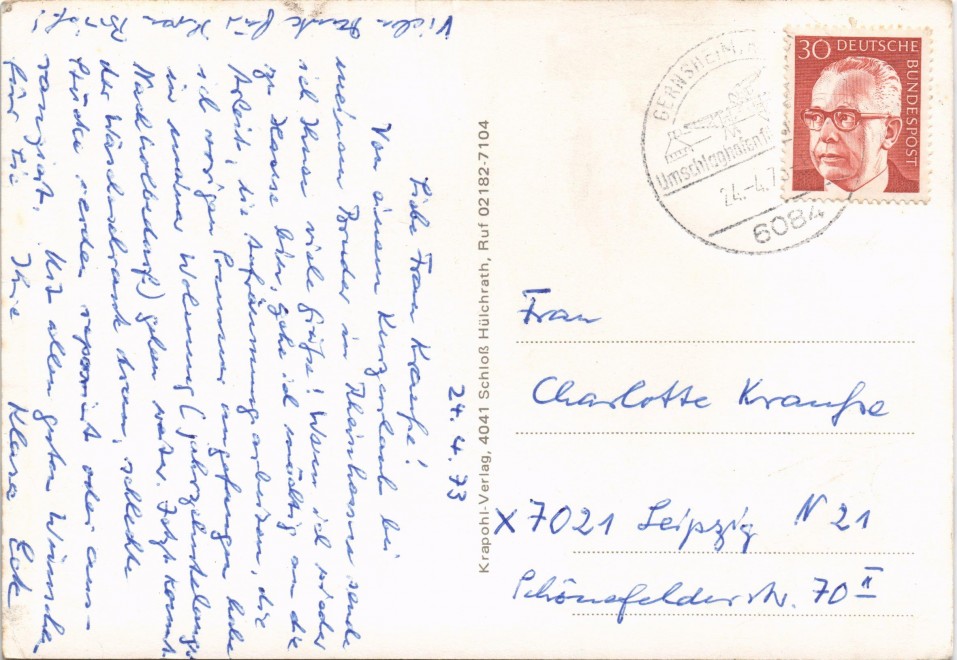 24.4.73
Liebe Frau Kraußse!
Von einem Kurzurlaub bei
meinem Bruder in Rheinhessen sende
ich Ihnen viele Grüße! Wenn ich wieder
zu Hause bin, gehe ich mächtig an die
Arbeit, die Aufräumungsarbeiten, die
ich vorigen Sommer angefangen habe
in meiner Wohnung (jahrzehntelanger
Nachholbedarf) gehen weiter. Jetzt kommt
der Wäscheschrank dran, schlechte
Stücke werden repariert oder aus-
rangiert. Mit allen guten Wünschen
für Sie Ihre Klara Eck
Vielen Dank für
Ihren
Brief!
Krapohl-Verlag, 4041 Schloß Hülchrath, Ruf 02182-7104
30 DEUTSCHE
BUNDESPOST
GERNSHEIM
Umschlaghafen
24.-4.73
6084
Frau
Charlotte Kraußse
X7021 Leipzig N 21
Schönefelderstr. 70 II